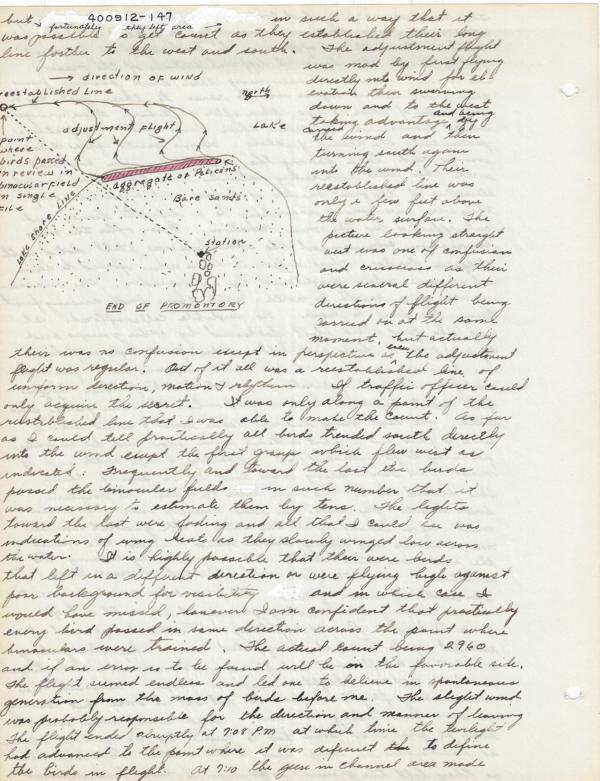 400912-147
but fortunately they left area in such a way that it
was possible to get count as they established their long
line farther to the west and south. The adjustment flight
was mad by first flying
directly into wind for ele
vation then swinning
down and to the west
taking advantage of
the wind and being carried then
turning south again
into the wind. Their
reestablished line was
only a few feet above
the water surface. The
picture looking straight
west was one of confusion
and crisscross as their
were several different
directions of flight being
carried on at the same
moment, but actually
→ direction of wind
reestablished Line
north
Lake
adjustment flight
point
where
birds passed
in review in
binocular field
in single
file
aggregate of Pelicans
Lake shore Line
Bare sands
station
END OF PROMONTORY
their was no confusion except in perspective as even the adjustment
flight was regular. Out of it all was a reestablished line of
uniform direction, motion & rhythm. If traffic officer could
only acquire the secret. It was only along a point of the
reestablished line that I was able to make the count. As far
as I could tell practically all birds trended south directly
into the wind except the first group which flew west as
indicated. Frequently and toward the last the birds
passed the binocular fields in such number that it
was necessary to estimate them by tens. The lights
toward the last were fading and all that I could see was
indications of wing beats as they slowly winged low across
the water. It is highly possible that their were birds
that left in a different direction or were flying high against
poor background for visibility and in which case I
would have missed, however I am confident that practically
every bird passed in same direction across the point where
binoculars were trained. The actual count being 2960
and if an error is to be found will be on the favorable side.
The flight seemed endless and led one to believe in spontaneous
generation from the mass of birds before me. The slight wind
was probably responsible for the direction and manner of leaving
The flight ended abruptly at 7:08 P.M. at which time the twilight
had advanced to the point where it was deficient to define
the birds in flight. At 7:10 the geese in channel area made